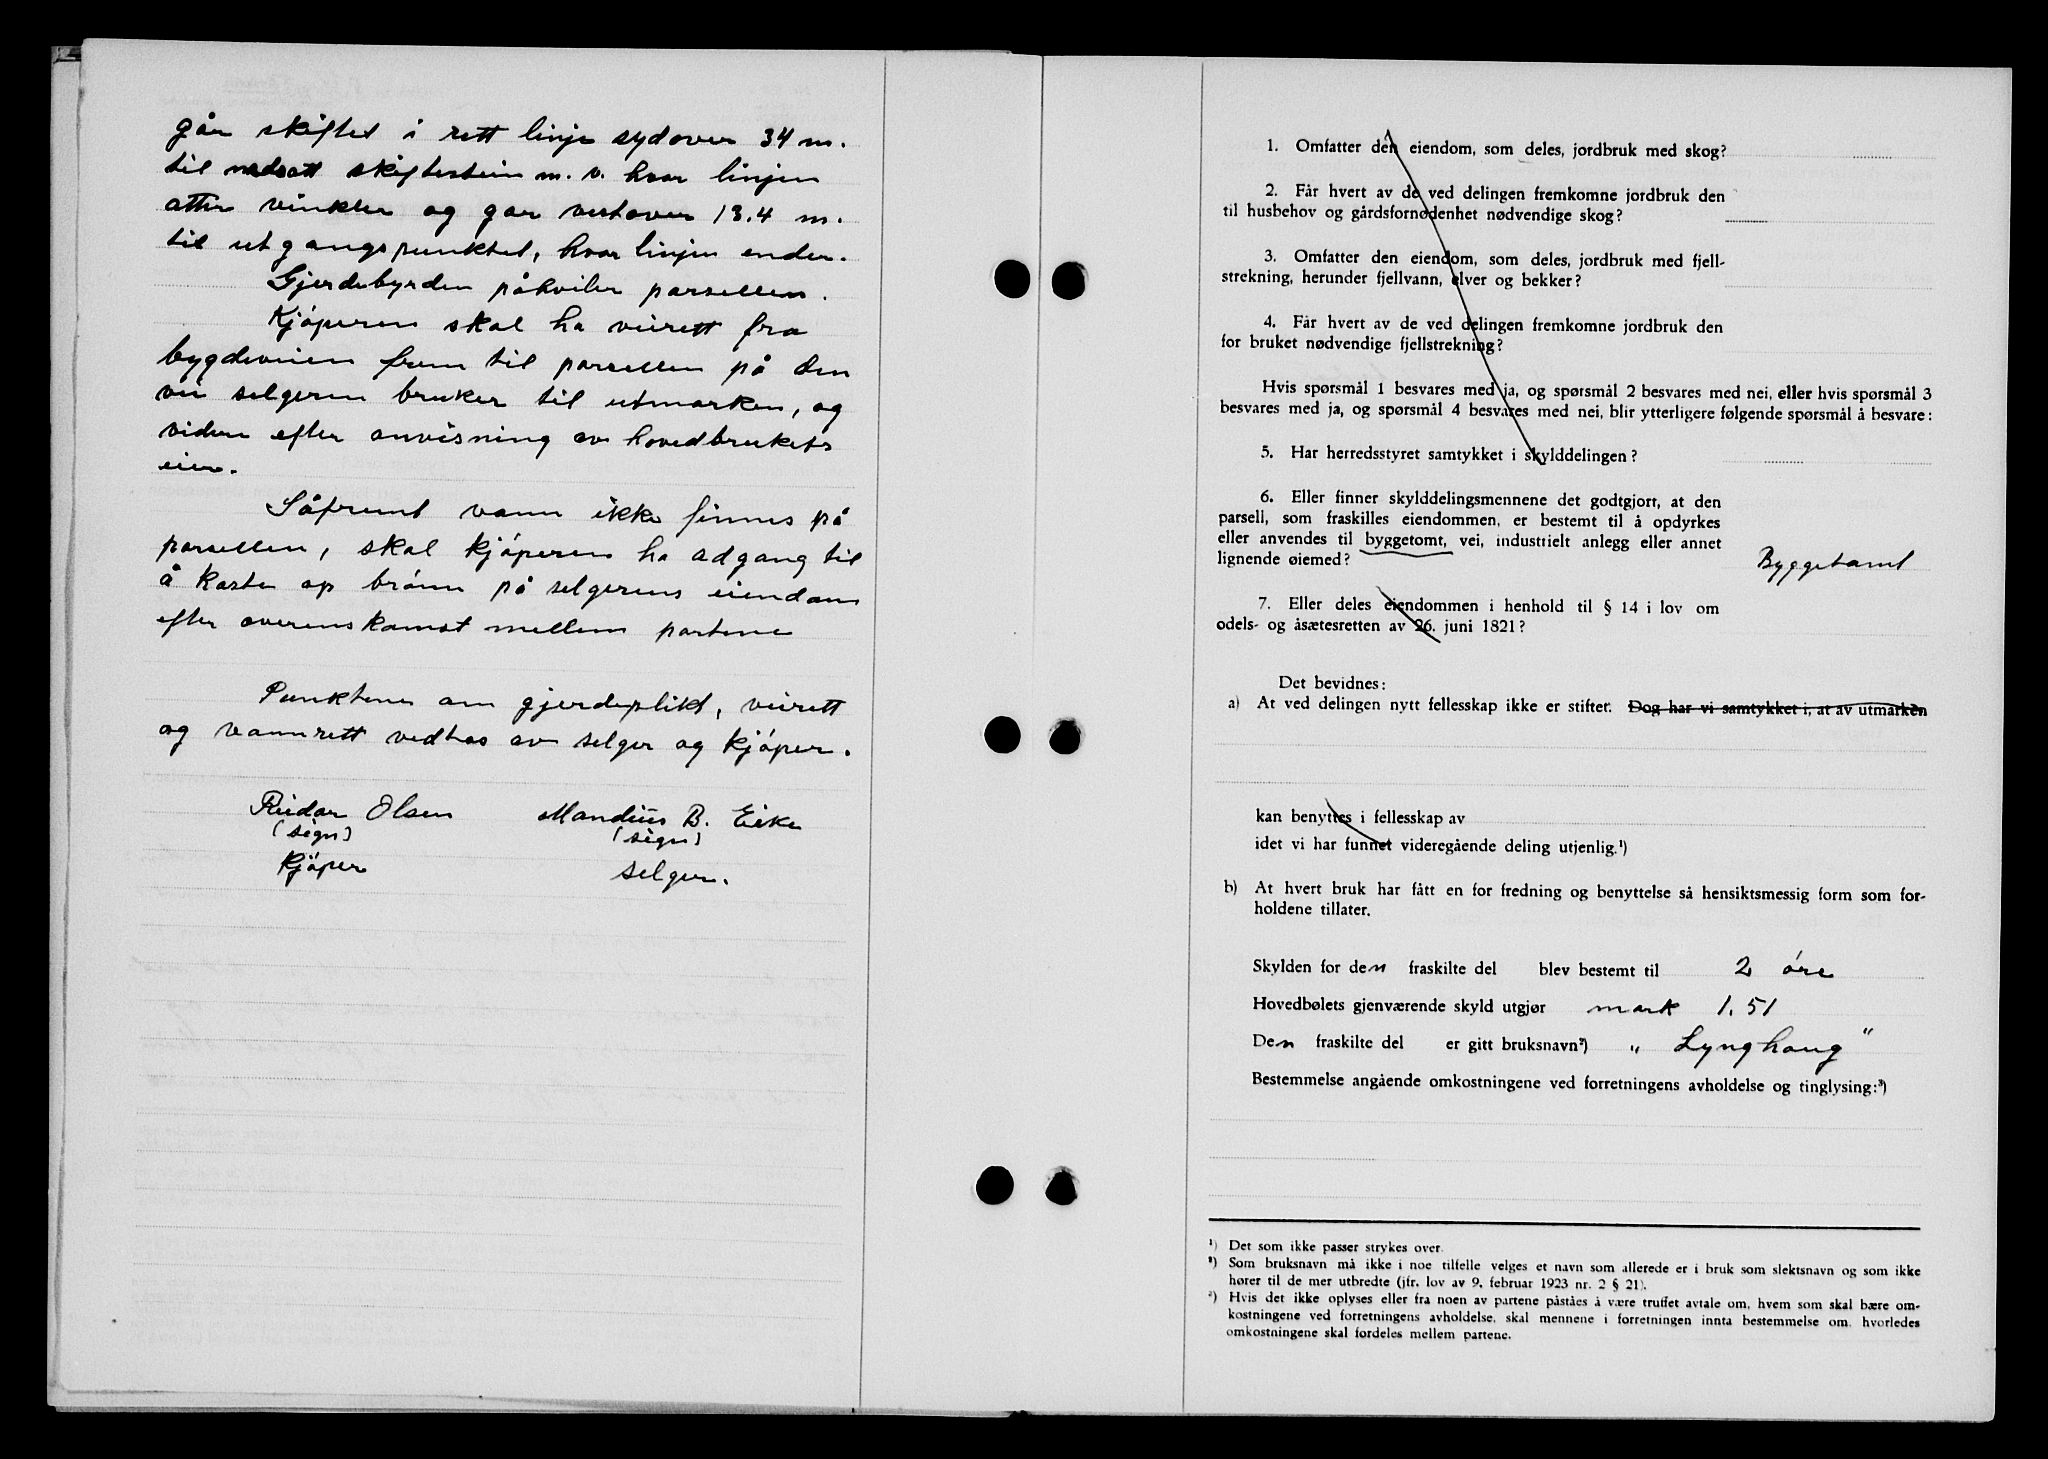 går skiftet i rett linje sydover 34 m.
til nedsatt skiftestein m. v. hvor linjen
atter vinkler og går vestover 13.4 m.
til utgangspunktet, hvor linjen ender.
Gjerdebyrden påhviler parsellen.
Kjøperen skal ha veirett fra
bygdeveien frem til parsellen på den
vei selgeren bruker til utmarken, og
videre efter anvisning av hovedbrukets
eier.
Såfremt vann ikke finnes på
parsellen, skal kjøperen ha adgang til
å kaste op brønn på selgerens eiendom
efter overenskomst mellem partene
Punktene om gjerdeplikt, veirett
og vannrett vedtas av selger og kjøper.
Reidar Olsen Mandius B. Eike
(sign) (sign)
Kjøper selger.
1. Omfatter den eiendom, som deles, jordbruk med skog?
2. Får hvert av de ved delingen fremkomne jordbruk den
til husbehov og gårdsfornødenhet nødvendige skog?
3. Omfatter den eiendom, som deles, jordbruk med fjell-
strekning, herunder fjellvann, elver og bekker?
4. Får hvert av de ved delingen fremkomne jordbruk den
for bruket nødvendige fjellstrekning?
Hvis spørsmål 1 besvares med ja, og spørsmål 2 besvares med nei, eller hvis spørsmål 3
besvares med ja, og spørsmål 4 besvares med nei, blir ytterligere følgende spørsmål å besvare:
5. Har herredsstyret samtykket i skylddelingen?
6. Eller finner skylddelingsmennene det godtgjort, at den
parsell, som fraskilles eiendommen, er bestemt til å opdyrkes
eller anvendes til byggetomt, vei, industrielt anlegg eller annet
lignende øiemed? Byggetomt
7. Eller deles eiendommen i henhold til § 14 i lov om
odels- og åsætesretten av 26. juni 1821?
Det bevidnes:
a) At ved delingen nytt fellesskap ikke er stiftet. Dog har vi samtykket i, at av utmarken
kan benyttes i fellesskap av
idet vi har funnet videregående deling utjenlig.¹)
b) At hvert bruk har fått en for fredning og benyttelse så hensiktsmessig form som for-
holdene tillater.
Skylden for den fraskilte del blev bestemt til 2 øre
Hovedbølets gjenværende skyld utgjør mark 1.51
Den fraskilte del er gitt bruksnavn²) " Lynghaug "
Bestemmelse angående omkostningene ved forretningens avholdelse og tinglysing:³)
¹) Det som ikke passer strykes over.
²) Som bruksnavn må ikke i noe tilfelle velges et navn som allerede er i bruk som slektsnavn og som ikke
hører til de mer utbredte (jfr. lov av 9. februar 1923 nr. 2 § 21).
³) Hvis det ikke oplyses eller fra noen av partene påståes å være truffet avtale om, hvem som skal bære om-
kostningene ved forretningens avholdelse, skal mennene i forretningen innta bestemmelse om, hvorledes
omkostningene skal fordeles mellem partene.